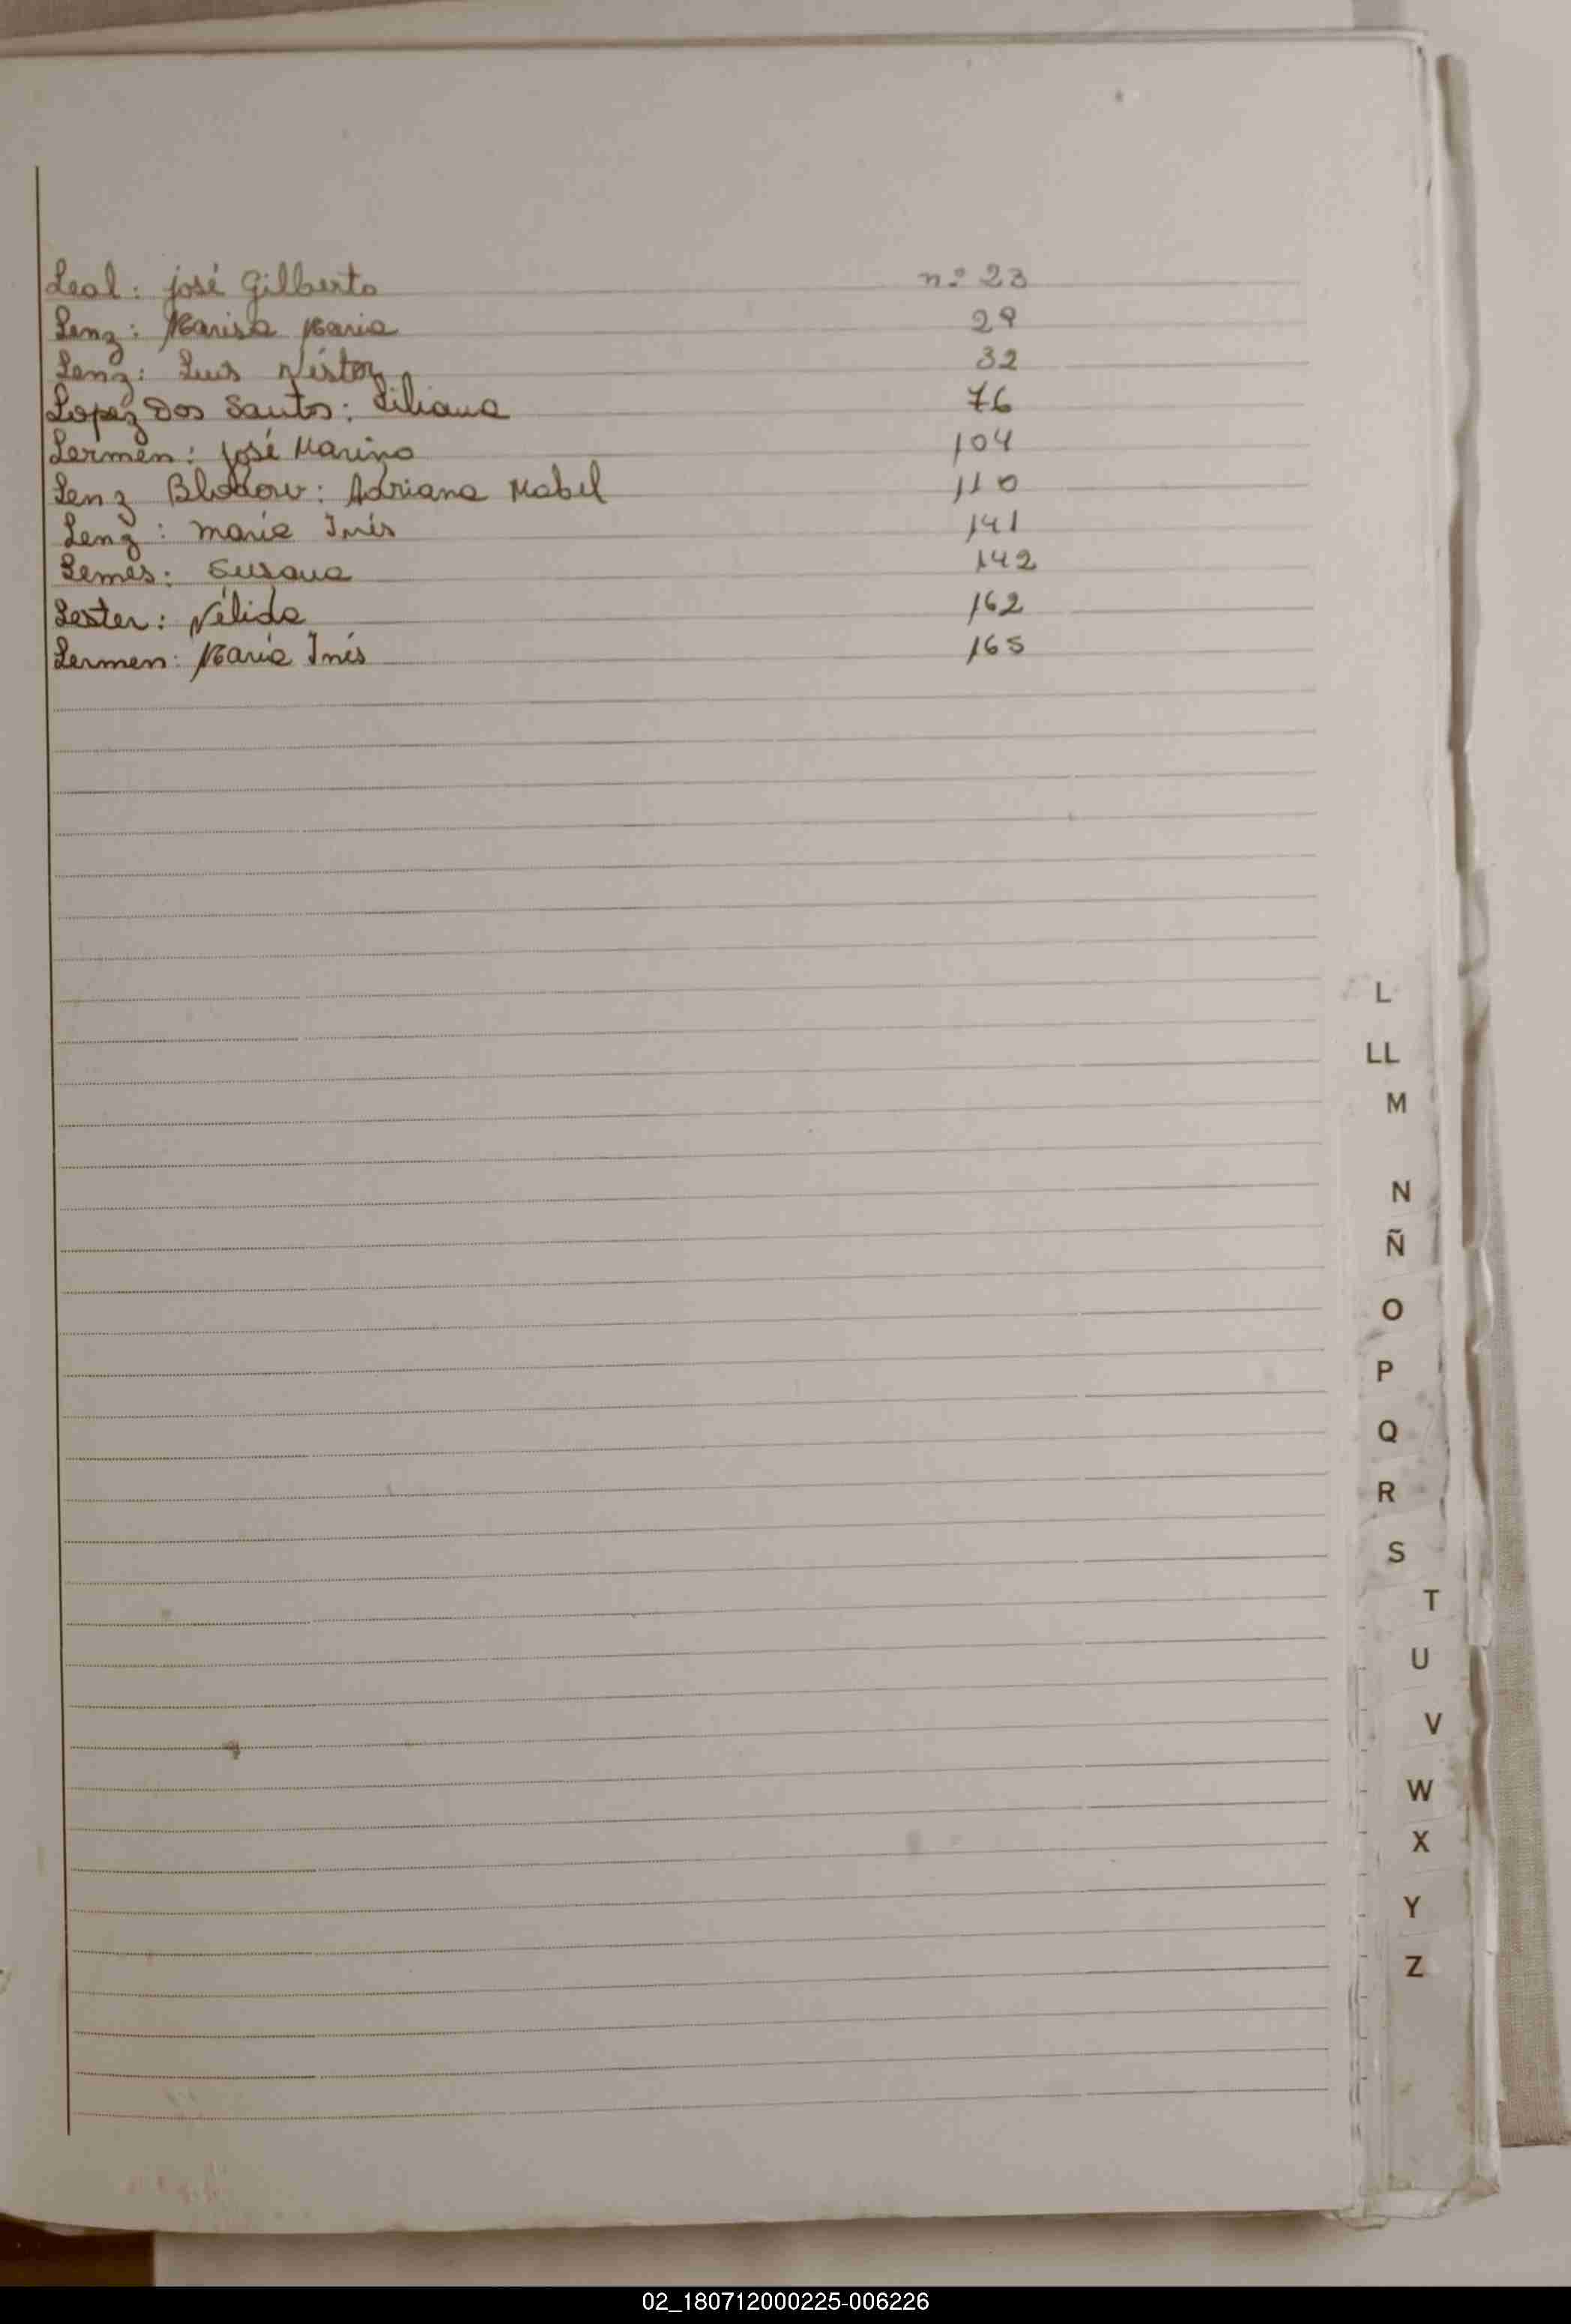 Leal: José Gilberto n.º 23
Lenz: Marisa Maria 29
Lenz: Luis Néstor 32
Lopez Dos Santos: Liliana 76
Lermen: José Marino 104
Lenz Blodow: Adriana Mabel 110
Lenz: maria Inés 141
Lemes: Susana 142
Lester: Nélida 162
Lermen: Maria Inés 165
L
LL
M
N
Ñ
O
P
Q
R
S
T
U
V
W
X
Y
Z
02_180712000225-006226